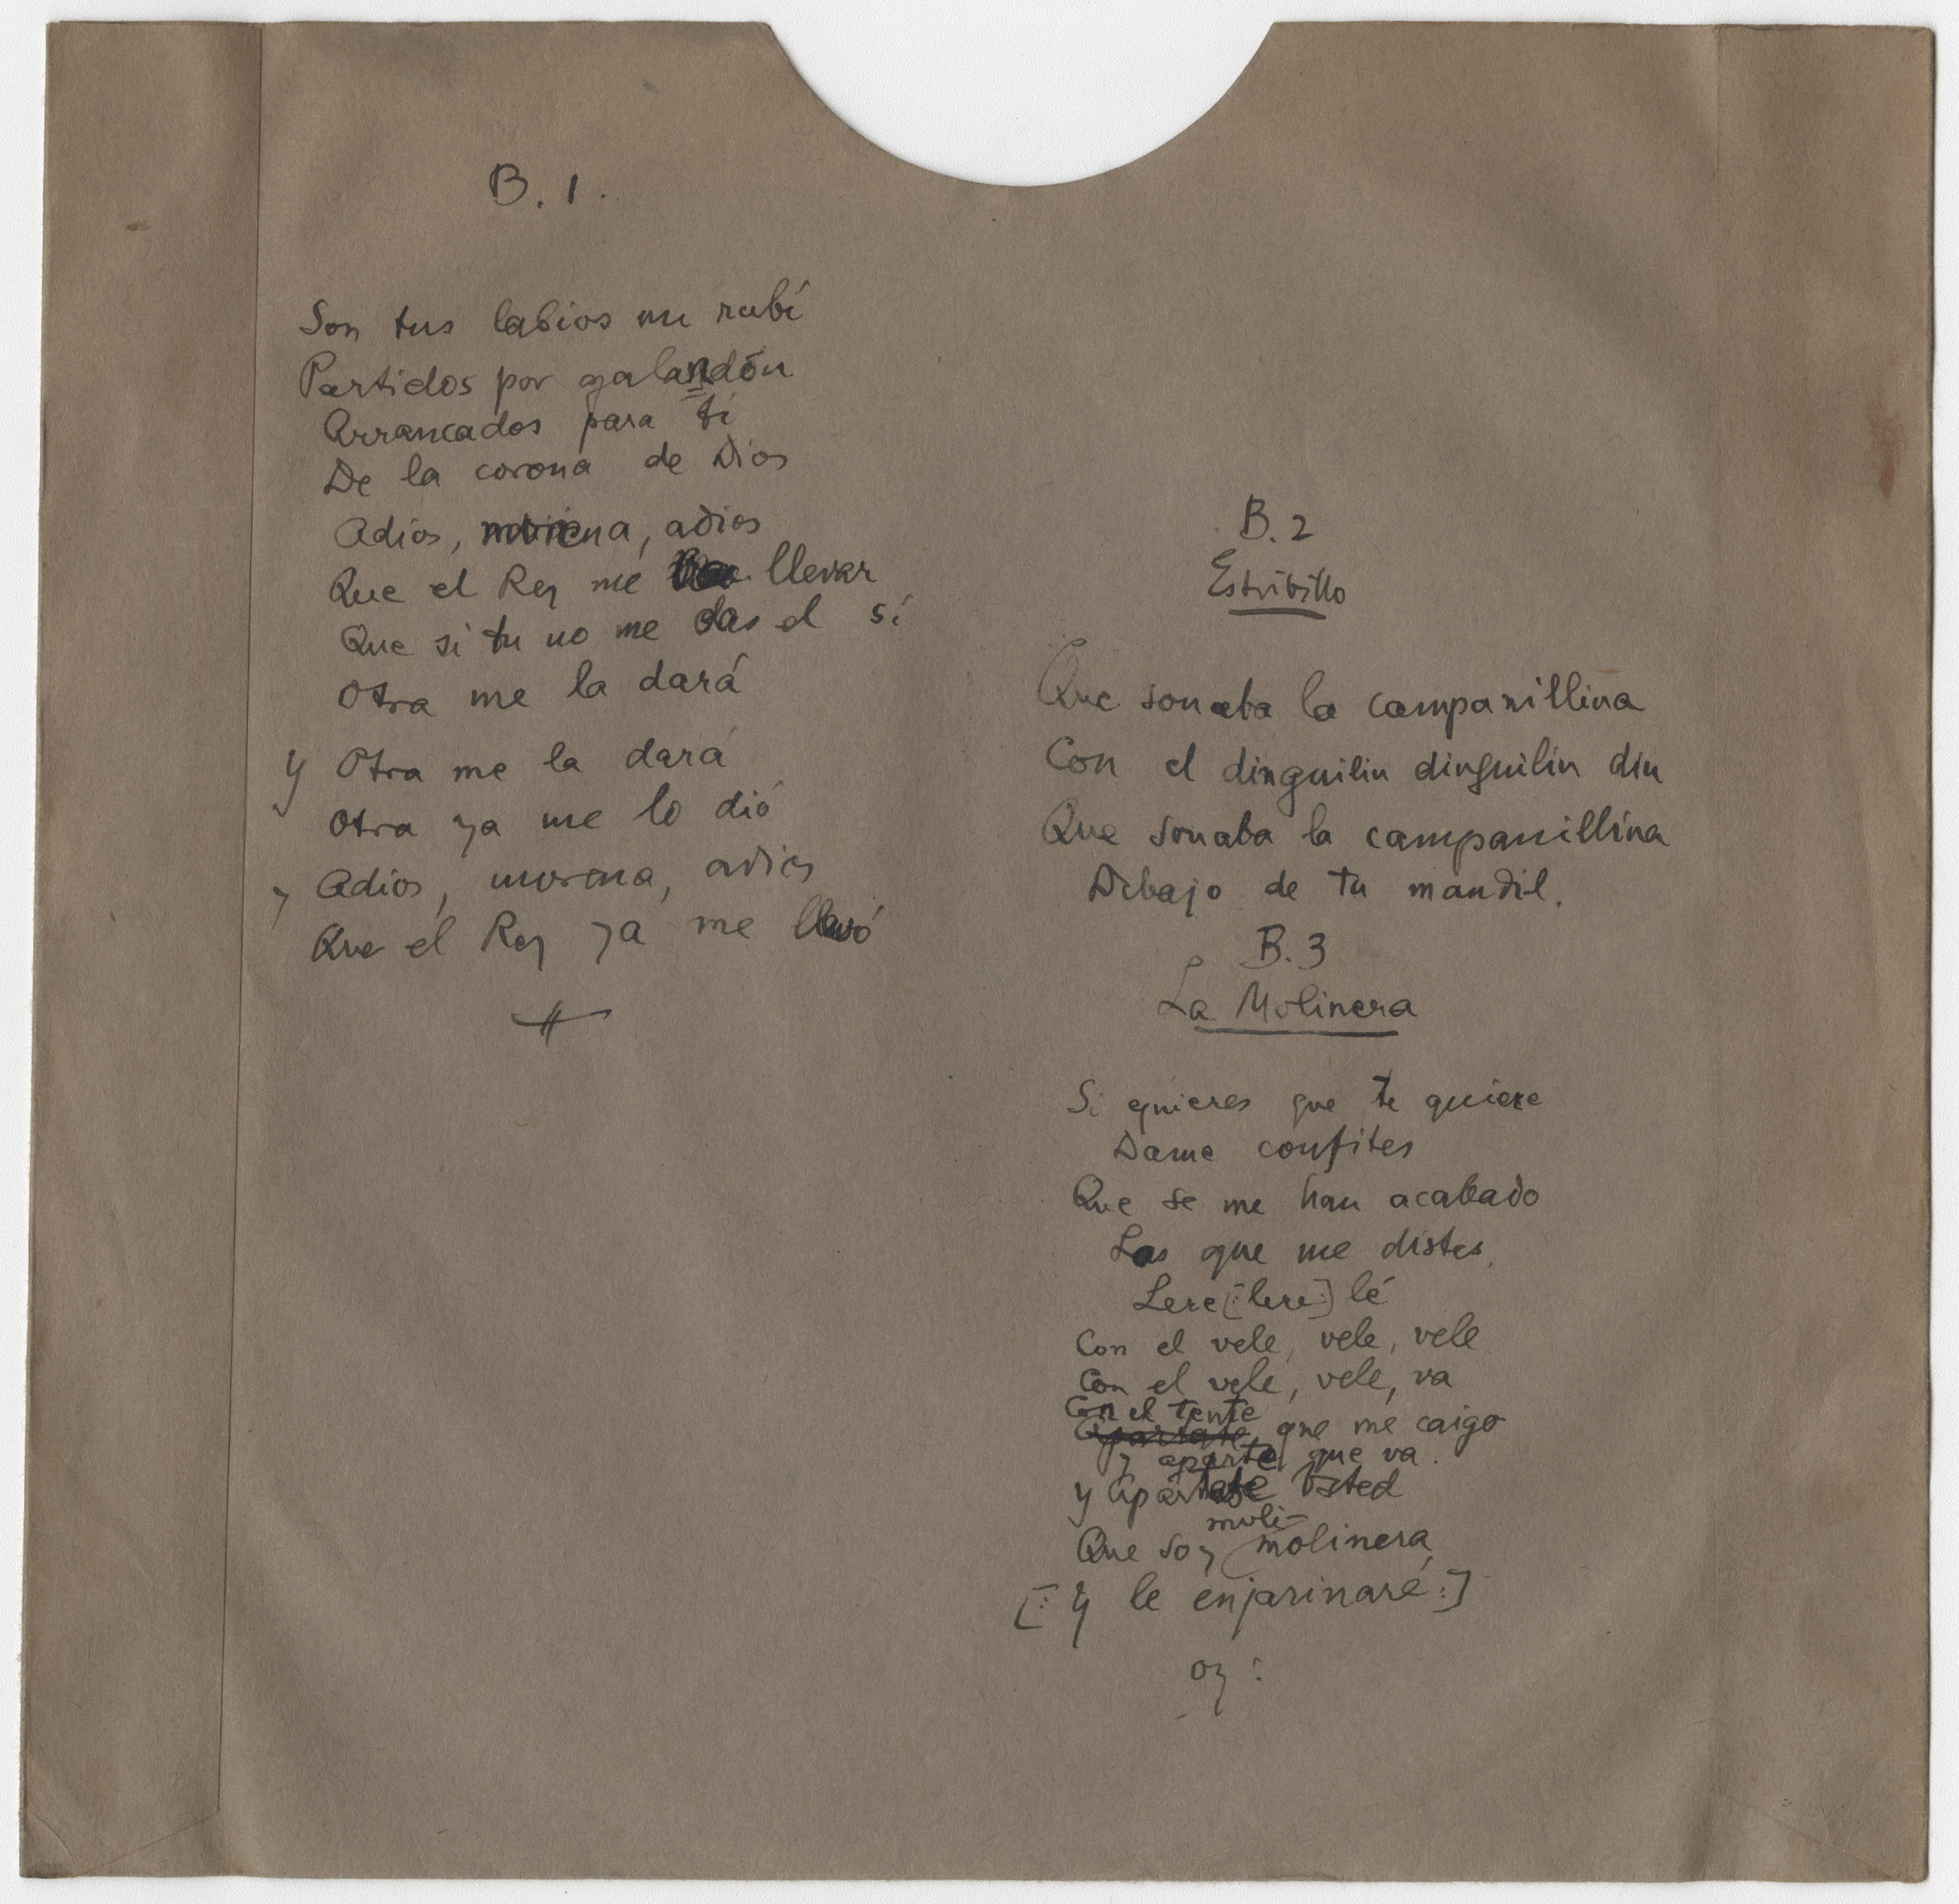 B. 1.
Son tus labios un rubí
Partidos por galandón
Arrancados para ti
De la corona de Dios
Adios, morena, adios
Que el Rey me llevar
Que si tu no me das el sí
Otra me la dará
y Otra me la dará
Otra ya me lo dió
y Adios, morena, adios
Que el Rey ya me llevó
B. 2
Estribillo
Que sonaba la campanillina
Con el dinguilin dinguilin din
Que sonaba la campanillina
Debajo de tu mandil.
B. 3
La Molinera
Si quieres que te quiere
Dame confites
Que se me han acabado
Los que me distes,
Lere [: lere :] lé
Con el vele, vele, vele
Con el vele, vele, va
Con el tente
Apartate que me caigo
y aparte que va.
y Apártate Usted
moli-
Que soy molinera
[: Y le enjarinaré :]
oy :